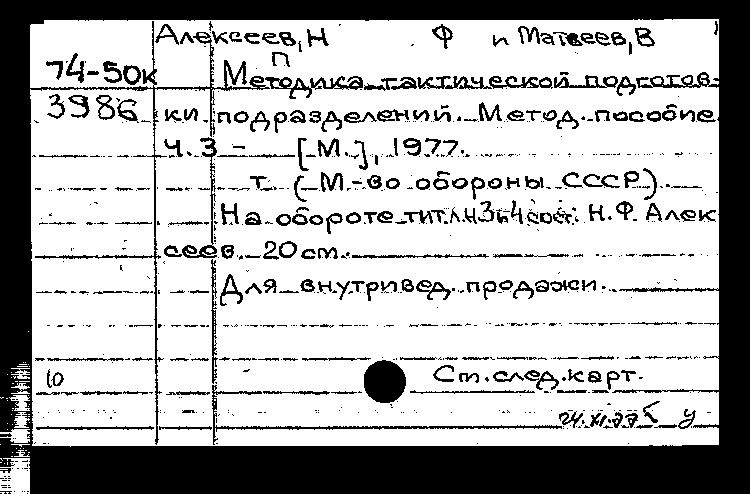 Алексеев, Н Ф и Матвеев, В
П
74-50к Методика тактической подготов-
3986 ки подразделений. Метод. пособие
Ч. 3 - [М.], 1977.
т. (М-во обороны СССР).
На обороте тит. л. ч 3 и 4 сост. Н.Ф. Алек
сеев. 20 см.
Для внутривед. продажи.
10 См. след. карт.
24.XI.77 У